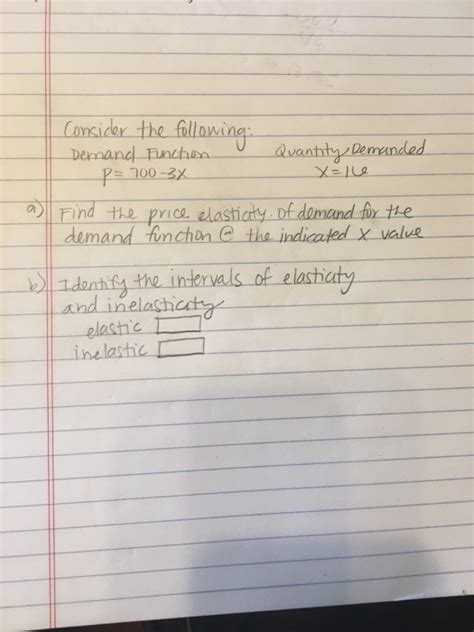 Consider the following:
Demand Function Quantity Demanded
p = 700 - 3x x = 16
a) Find the price elasticity of demand for the
demand function @ the indicated x value
b) Identify the intervals of elasticity
and inelasticity
elastic
inelastic